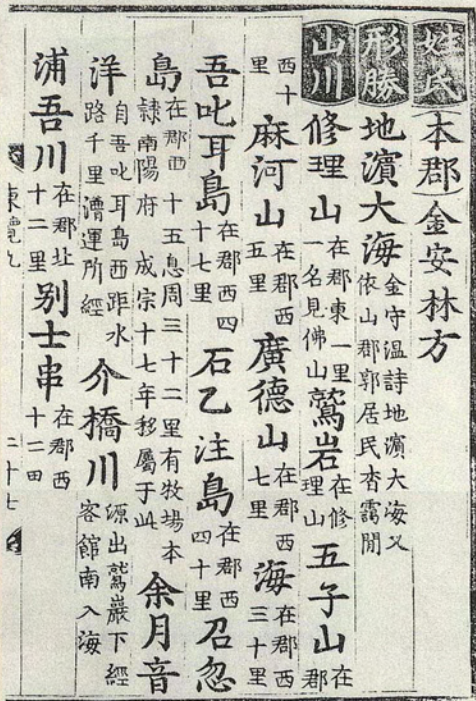 姓氏 本郡 金安林方
形勝 地濱大海 金守溫詩地濱大海又依山郡郭居民杳靄間
山川 修理山 在郡東一里一名見佛山 鷲岩 在修理山 五子山 在郡
西十里 麻河山 在郡西五里 廣德山 在郡西七里 海 在郡西三十里
吾叱耳島 在郡西四十七里 石乙注島 在郡西四十里 召忽
島 在郡西十五息周三十二里有牧場本隷南陽府成宗十七年移屬于此 余月音
洋 自吾叱耳島西距水路千里漕運所經 介橋川 源出鷲巖下經客館南入海
浦吾川 在郡北十二里 别士串 在郡西十二田
東覽九 二十七